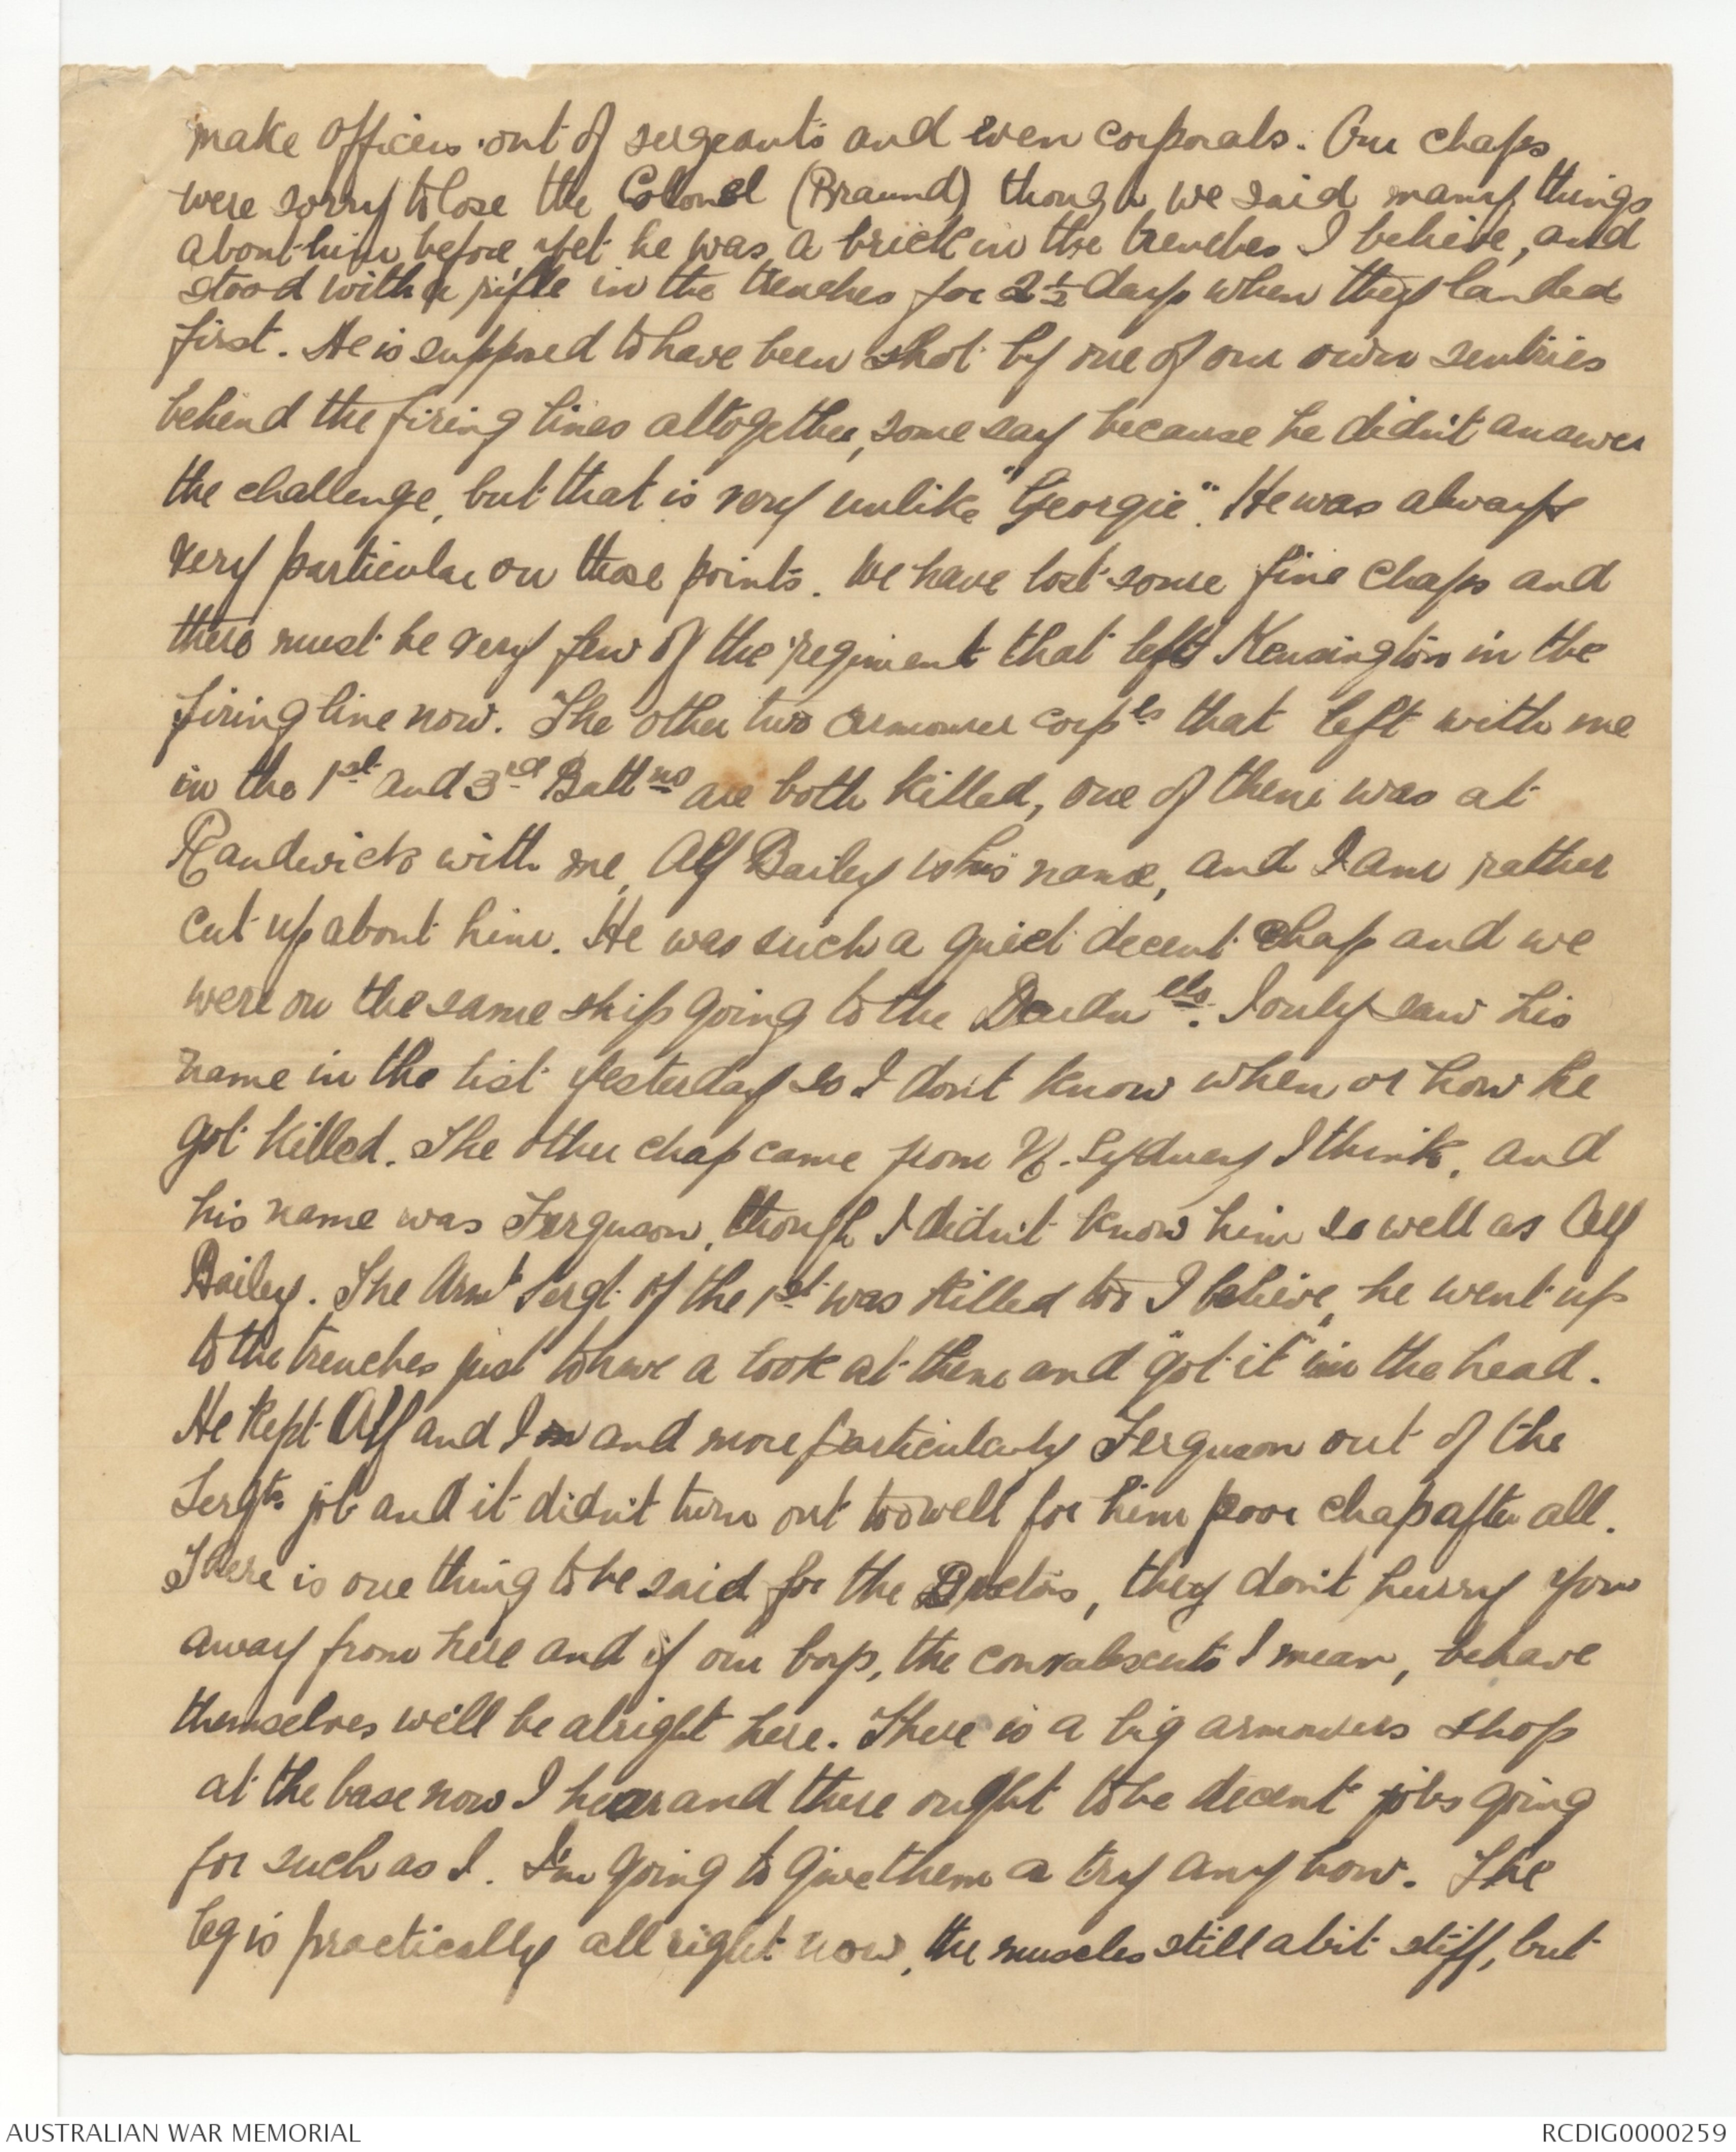 make officers out of sergeants and even corporals. Our chaps
were sorry to lose the Colonel (Braund) though we said many things
about him before yet he was a brick in the trenches I believe, and
stood with a rifle in the trenches for 2½ days when they landed
first. He is supposed to have been shot by one of our own sentries
behind the firing lines altogether, some say because he didn't answer
the challenge, but that is very unlike "Georgie". He was always
very particular on those points. We have lost some fine chaps and
there must be very few of the regiment that left Kensington in the
firing line now. The other two armourer corpls that left with me
in the 1st and 3rd Battns are both killed, one of them was at
Randwick with me, Alf Bailey is his name, and I am rather
cut up about him. He was such a quiet decent chap and we
were on the same ship going to the Dardnells. I only saw his
name in the list yesterday so I don't know when or how he
got killed. The other chap came from N. Sydney I think, and
his name was Ferguson, though I didn't know him so well as Alf
Bailey. The Armr Sergt of the 1st was killed too I believe, he went up
to the trenches just to have a look at them and "got it" in the head.
He kept Alf and I and more particularly Ferguson out of the
Sergts job and it didn't turn out too well for him poor chap after all.
There is one thing to be said for the Doctors, they don't hurry you
away from here and if our boys, the convalescents I mean, behave
themselves we'll be alright here. There is a big armourers shop
at the base now I hear and there ought to be decent jobs going
for such as I. I'm going to give them a try any how. The
leg is practically all right now, the muscles still a bit stiff, but
AUSTRALIAN WAR MEMORIAL
RCDIG0000259